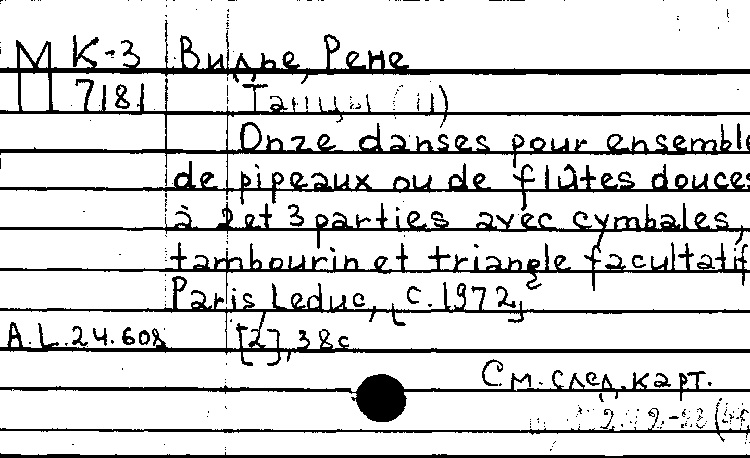 М К-3 Вилье, Рене
7181 Танцы (11)
Onze danses pour ensemble
de pipeaux ou de flûtes douces
à 2 et 3 parties avec cymbales,
tambourin et triangle facultatifs
Paris, Leduc, [c. 1972]
A.L.24.608 [2], 38c
См. след. карт.